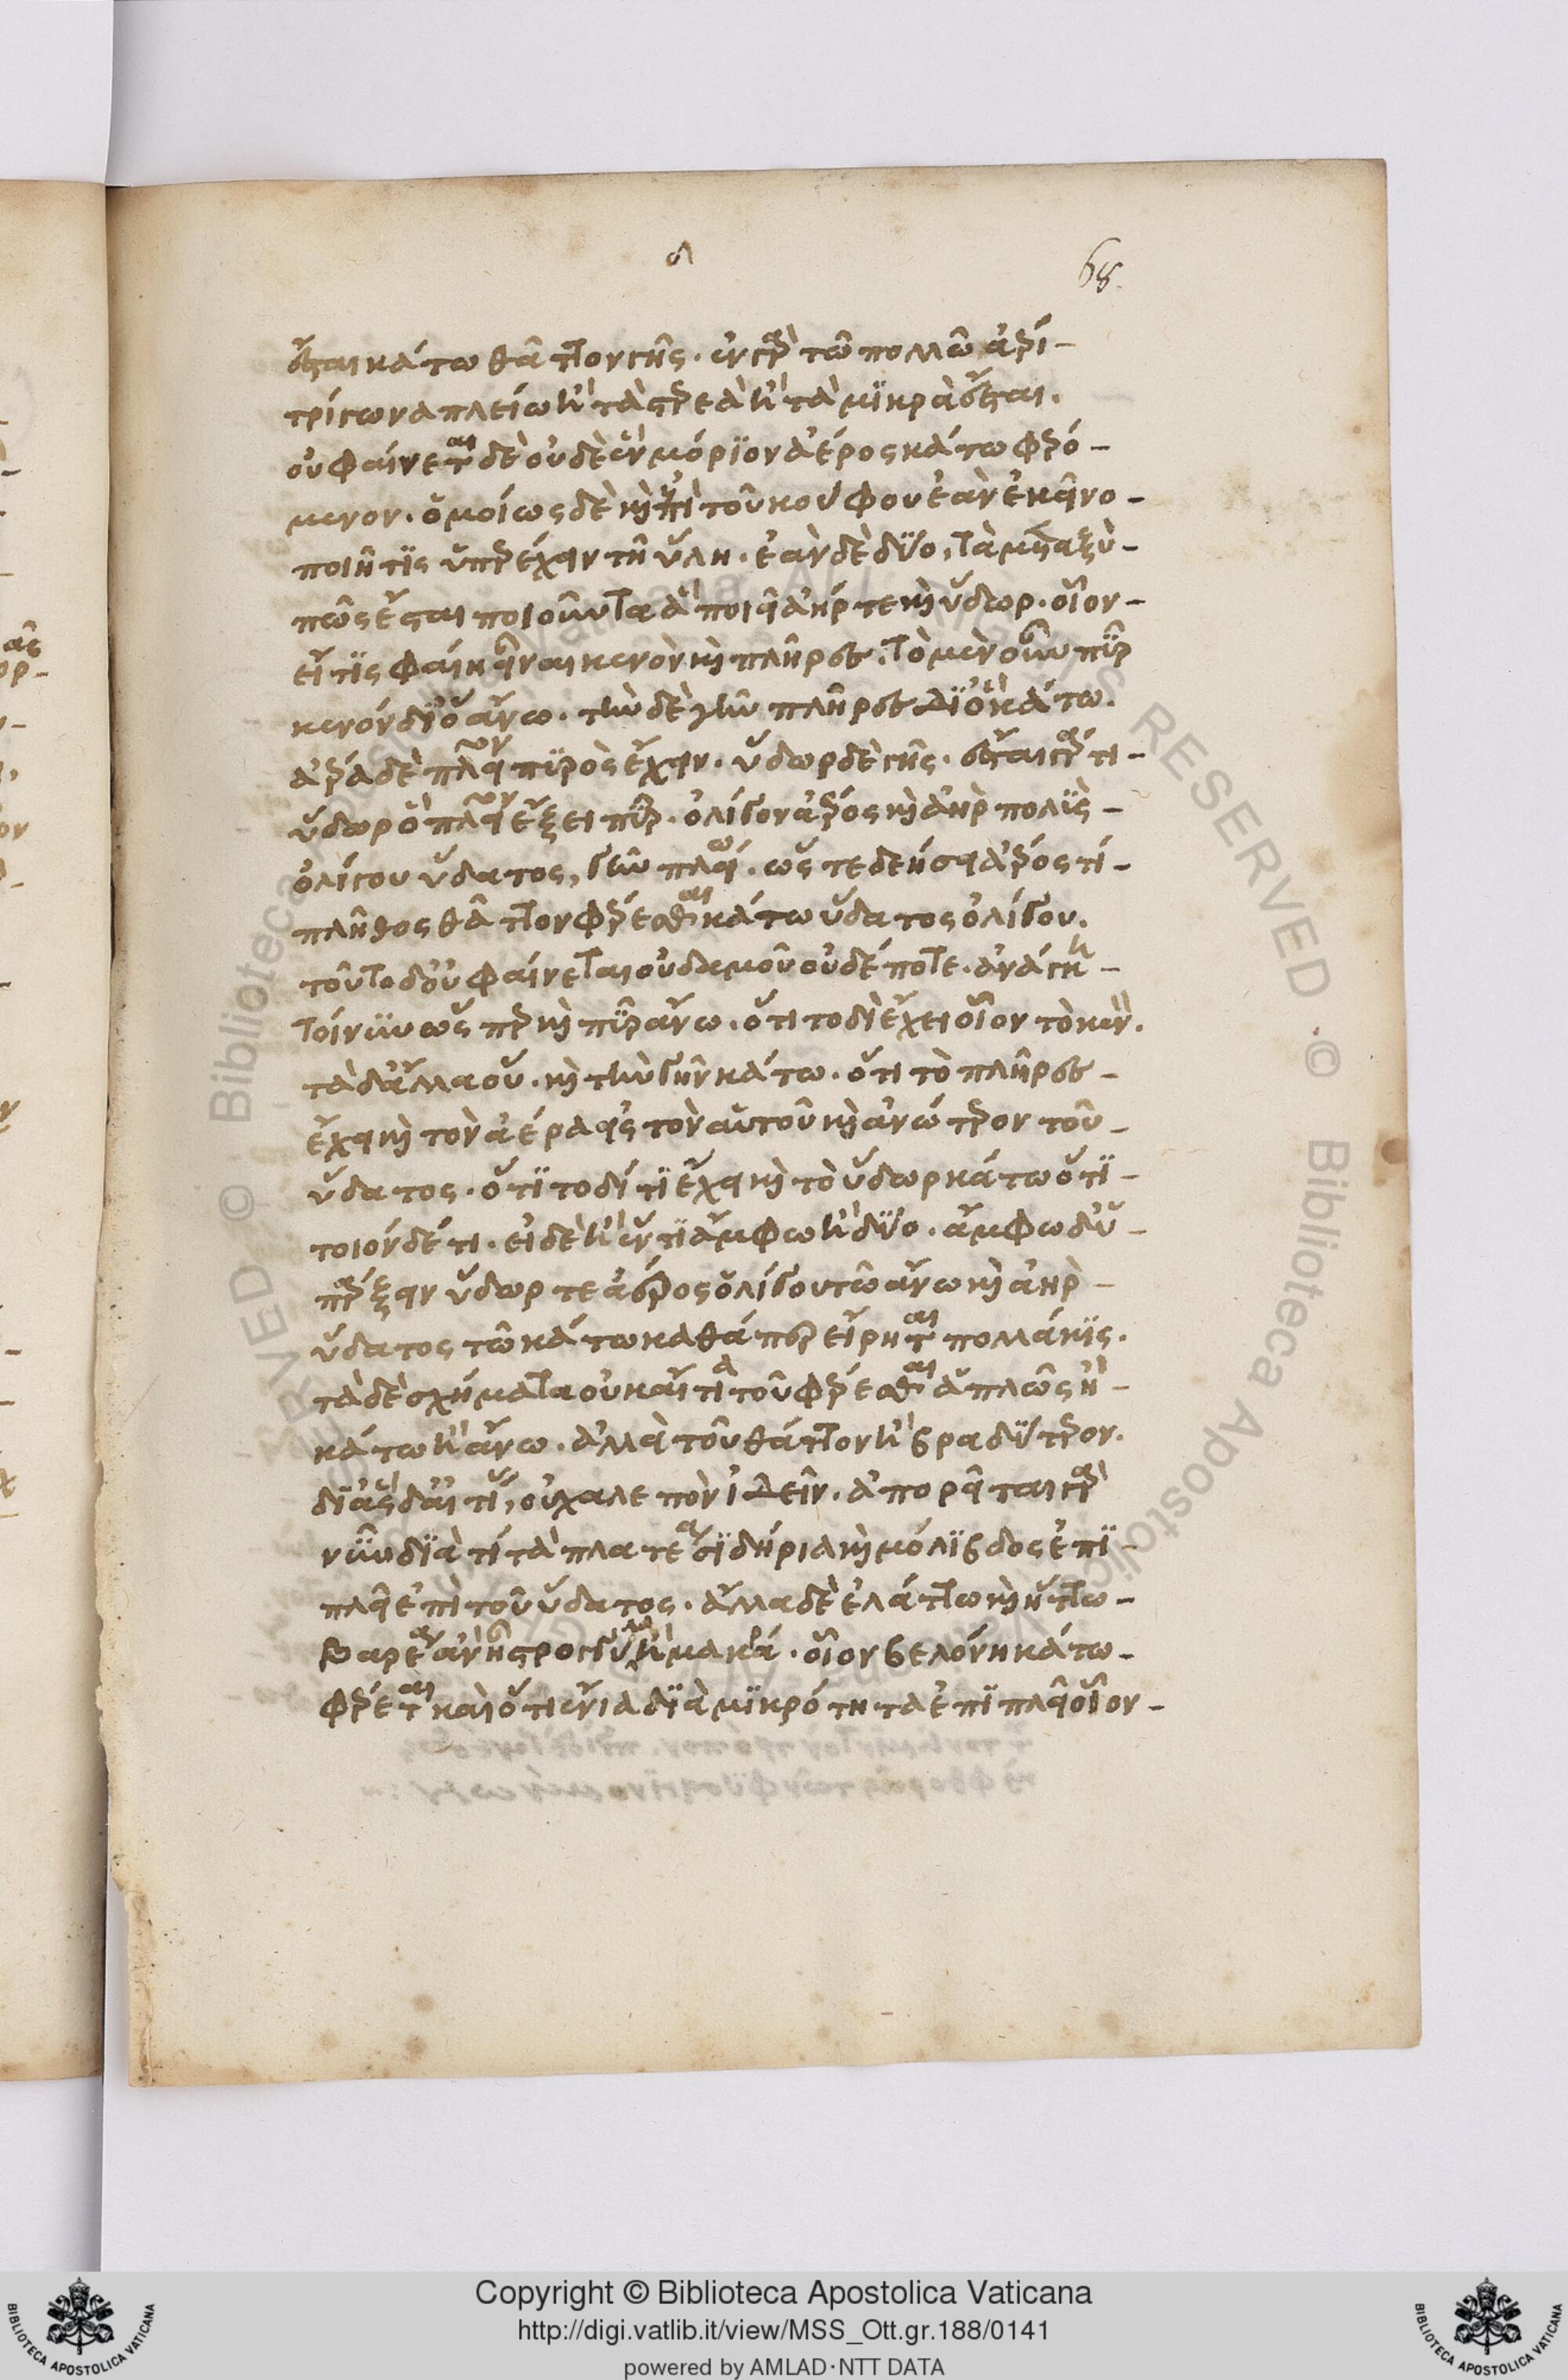 ἔσται κάτω θᾶττον γῆς· ἐν γὰρ τῶ πολλῶ ἀέρι –
τρίγωνα πλείω ἢ τὰ στερεὰ ἢ τὰ μϊκρὰ ἔσται.
οὐ φαίνεται δὲ οὐδὲ ἓν μόριον ἀέρος κάτω φερό –
μενον. ὁμοίως δὲ καὶ ἐπὶ τοῦ κούφου ἐὰν ἐκεῖνο –
ποιῆ τϊς ὑπερέχειν τῆ ὕλη· ἐὰν δὲ δύο, τὰ μεταξὺ –
πῶς ἔσται ποιοῦντα ἃ ποιεῖ ἀήρ τε καὶ ὕδωρ· οἷον –
εἴ τϊς φαίη εἶναι κενὸν καὶ πλῆρες. τὸ μὲν οὖν πῦρ
κενὸν δϊὸ ἄνω. τὴν δὲ γῆν πλῆρες δϊὸ καὶ κάτω.
ἀέρα δὲ πλεῖον πϋρὸς ἔχειν. ὕδωρ δὲ γῆς. ἔσται γάρ τι –
ὕδωρ ὃ πλεῖον ἕξει πῦρ. ὀλίγον ἀέρος καὶ ἀὴρ πολϋς –
ὀλίγου ὕδατος, γῆν πλείω. ὥστε δεήσει ἀέρος τί –
πλῆθος θᾶττον φέρεσθαι κάτω ὕδατος ὀλίγου.
τοῦτο δ’ οὐ φαίνεται οὐδαμοῦ οὐδέποτε. ἀνάγκη –
τοίνϋν ὥσπερ καὶ πῦρ ἄνω. ὅτι τοδὶ ἔχει οἷον τὸ κενὸν.
τὰ δ’ ἄλλα οὔ. καὶ τὴν γῆν κάτω. ὅτι τὸ πλῆρες –
ἔχει καὶ τὸν ἀέρα εἰς τὸν αὑτοῦ καὶ ἀνώτερον τοῦ –
ὕδατος. ὅτϊ τοδί τϊ ἔχει καὶ τὸ ὕδωρ κάτω ὅτϊ –
τοιόνδέ τι. εἰ δὲ ἢ ἕν τϊ ἄμφω ἢ δύο. ἄμφω δ’ ὑ –
πάρξειν ὕδωρ τε ἀέρος ὀλίγου τῶ ἄνω καὶ ἀὴρ –
ὕδατος τῶ κάτω καθάπερ εἴρηται πολλάκϊς.
τὰ δὲ σχήματα οὐκ αἴτια τοῦ φέρεσθαι ἁπλῶς ἢ –
κάτω ἢ ἄνω. ἀλλὰ τοῦ θάττον ἢ βραδύτερον.
δι’ ἃς δ’ αἰτί, οὐ χαλεπὸν ἰδεῖν. ἀπορεῖται γὰρ
νῦν δϊὰ τί τὰ πλατέα σϊδήρια καὶ μόλϊβδος ἐπϊ –
πλεῖ ἐπὶ τοῦ ὕδατος. ἄλλα δὲ ἐλάττω καὶ ἧττω –
βαρέα ἂν ἦ στρογγύλα ἢ μακρά. οἷον βελόνη κάτω –
φέρεται καὶ ὅτι ἔνια δϊὰ μϊκρότητα ἐπϊπλεῖ οἷον –